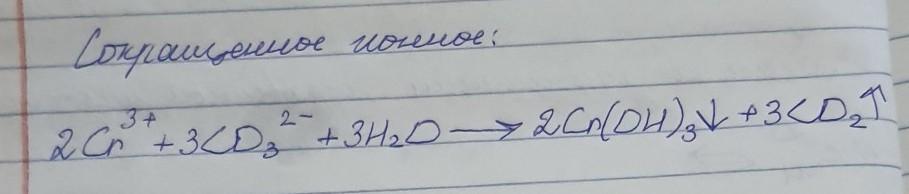 Сокращенное ионное:
2Cr³⁺ + 3CO₃²⁻ + 3H₂O → 2Cr(OH)₃↓ + 3CO₂↑